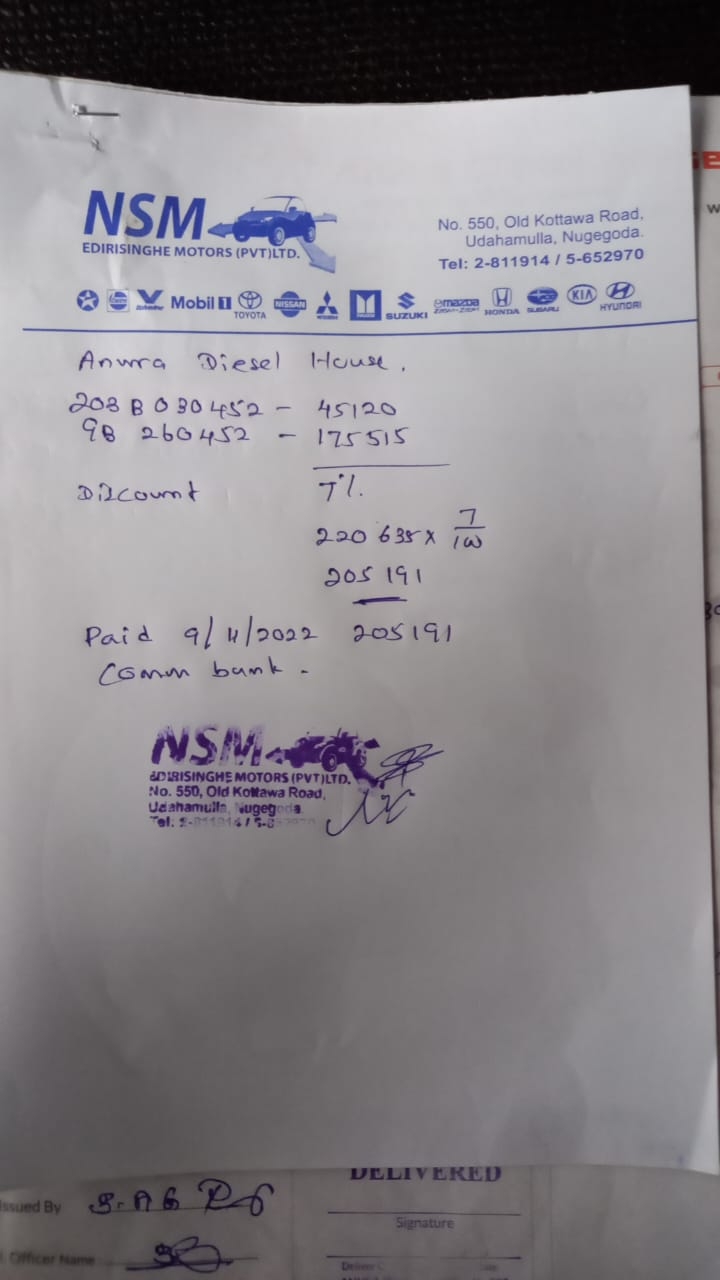 NSM
EDIRISINGHE MOTORS (PVT)LTD.
No. 550, Old Kottawa Road,
Udahamulla, Nugegoda.
Tel: 2-811914 / 5-652970
Mobil 1
TOYOTA
NISSAN
SUZUKI
mazda
HONDA
SUBARU
KIA
HYUNDAI
Anura Diesel House.
203 B 030452 - 45120
9B 260452 - 175515
Discount 7%.
220 635 x 7/100
205 191
Paid 9/11/2022 205191
Comm bank.
NSM
EDIRISINGHE MOTORS (PVT)LTD.
No. 550, Old Kottawa Road,
Udahamulla, Nugegoda.
Tel: 2-811914 / 5-652970
DELIVERED
Issued By
Signature
Officer Name
Deliver